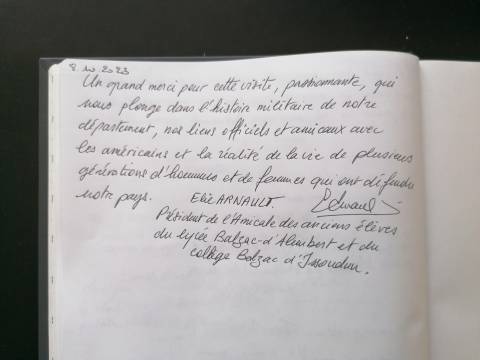 8.10.2023
Un grand merci pour cette visite, passionnante, qui
nous plonge dans l'histoire militaire de notre
département, nos liens officiels et amicaux avec
les américains et la réalité de la vie de plusieurs
générations d'hommes et de femmes qui ont défendu
notre pays. Elie ARNAULT.
Président de l'Amicale des anciens élèves
du lycée Balzac-d'Alembert et du
collège Balzac d'Issoudun.